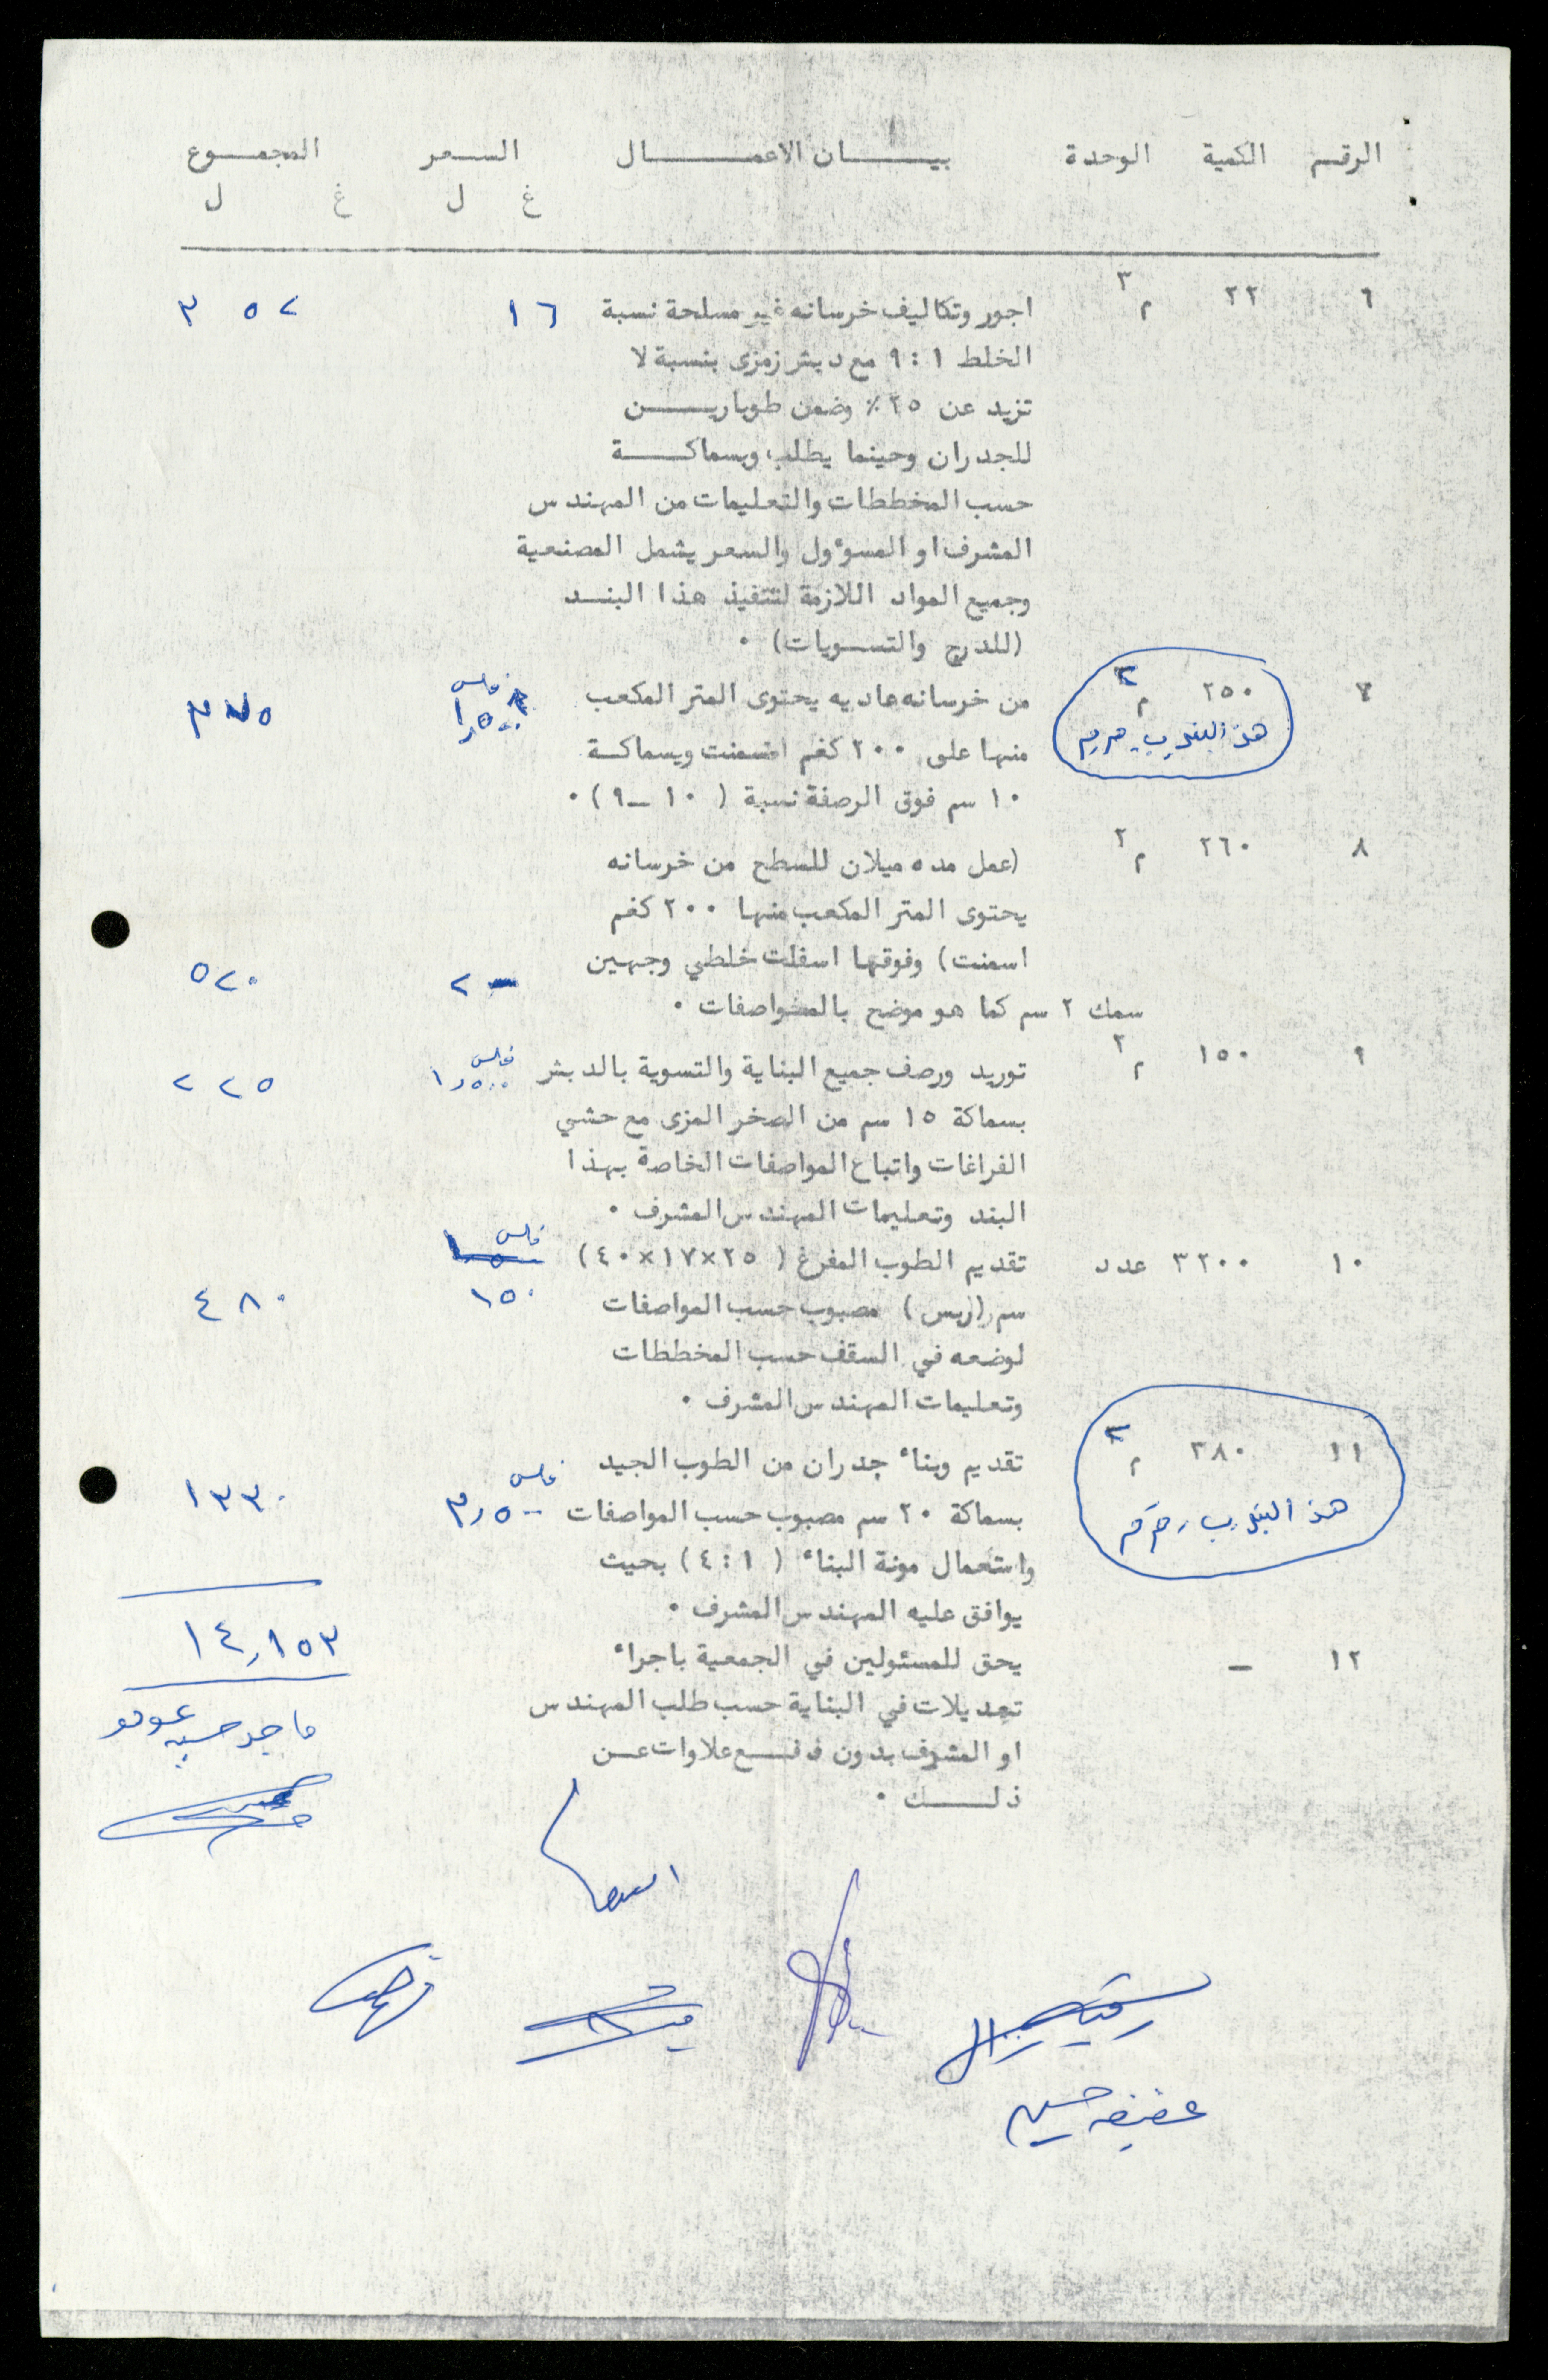 الرقم الكمية الوحدة بيـــان الاعمـــال السـعر المجمـوع
غ ل غ ل
٦ ٢٢ م٣ اجور وتكاليف خرسانه غير مسلحة نسبة ١٦ ٣٥٢
الخلط ١ : ٩ مع دبش زمزى بنسبة لا
تزيد عن ٢٥٪ وضمن طوباريـــن
للجدران وحينما يطلب وبسماكـــة
حسب المخططات والتعليمات من المهندس
المشرف او المسؤول والسعر يشمل المصنعية
وجميع المواد اللازمة لتنفيذ هذا البنـد
(للدرج والتسـويات) ٠
٧ ٢٥٠ م٢ من خرسانه عاديه يحتوى المتر المكعب ١٫٥٠٠ فلس ٣٧٥
هذا البند
منها على ٢٠٠ كغم اسمنت وبسماكـة
١٠ سم فوق الرصفة نسبة ( ١٠ ــ ٩ ) ٠
٨ ٢٦٠ م٢ (عمل مده ميلان للسطح من خرسانه
يحتوى المتر المكعب منها ٢٠٠ كغم
اسمنت) وفوقها اسفلت خلطي وجهين ٢ ٥٢٠
سمك ٢ سم كما هو موضح بالمواصفات ٠
٩ ١٥٠ م٢ توريد ورصف جميع البناية والتسوية بالدبش ١٫٥٠٠ فلس ٢٢٥
بسماكة ١٥ سم من الصخر المزى مع حشي
الفراغات واتباع المواصفات الخاصة بهذا
البند وتعليمات المهندس المشرف ٠
١٠ ٣٢٠٠ عدد تقديم الطوب المفرغ ( ٢٥×١٧×٤٠ ) فلس
سم (ربس) مصبوب حسب المواصفات ١٥٠ ٤٨٠
لوضعه في السقف حسب المخططات
وتعليمات المهندس المشرف ٠
١١ ٣٨٠ م٢ تقديم وبناء جدران من الطوب الجيد
هذا البند
بسماكة ٢٠ سم مصبوب حسب المواصفات ٣٫٥٠٠ فلس ١٣٣٠
واستعمال مونة البناء ( ١ : ٤ ) بحيث
يوافق عليه المهندس المشرف ٠
١٤٫١٥٣
١٢ ــ يحق للمسئولين في الجمعية باجراء
تعديلات في البناية حسب طلب المهندس
او المشرف بدون دفـع علاوات عـن
ذلـــك ٠
ماجد حسين
عفيفه حسين